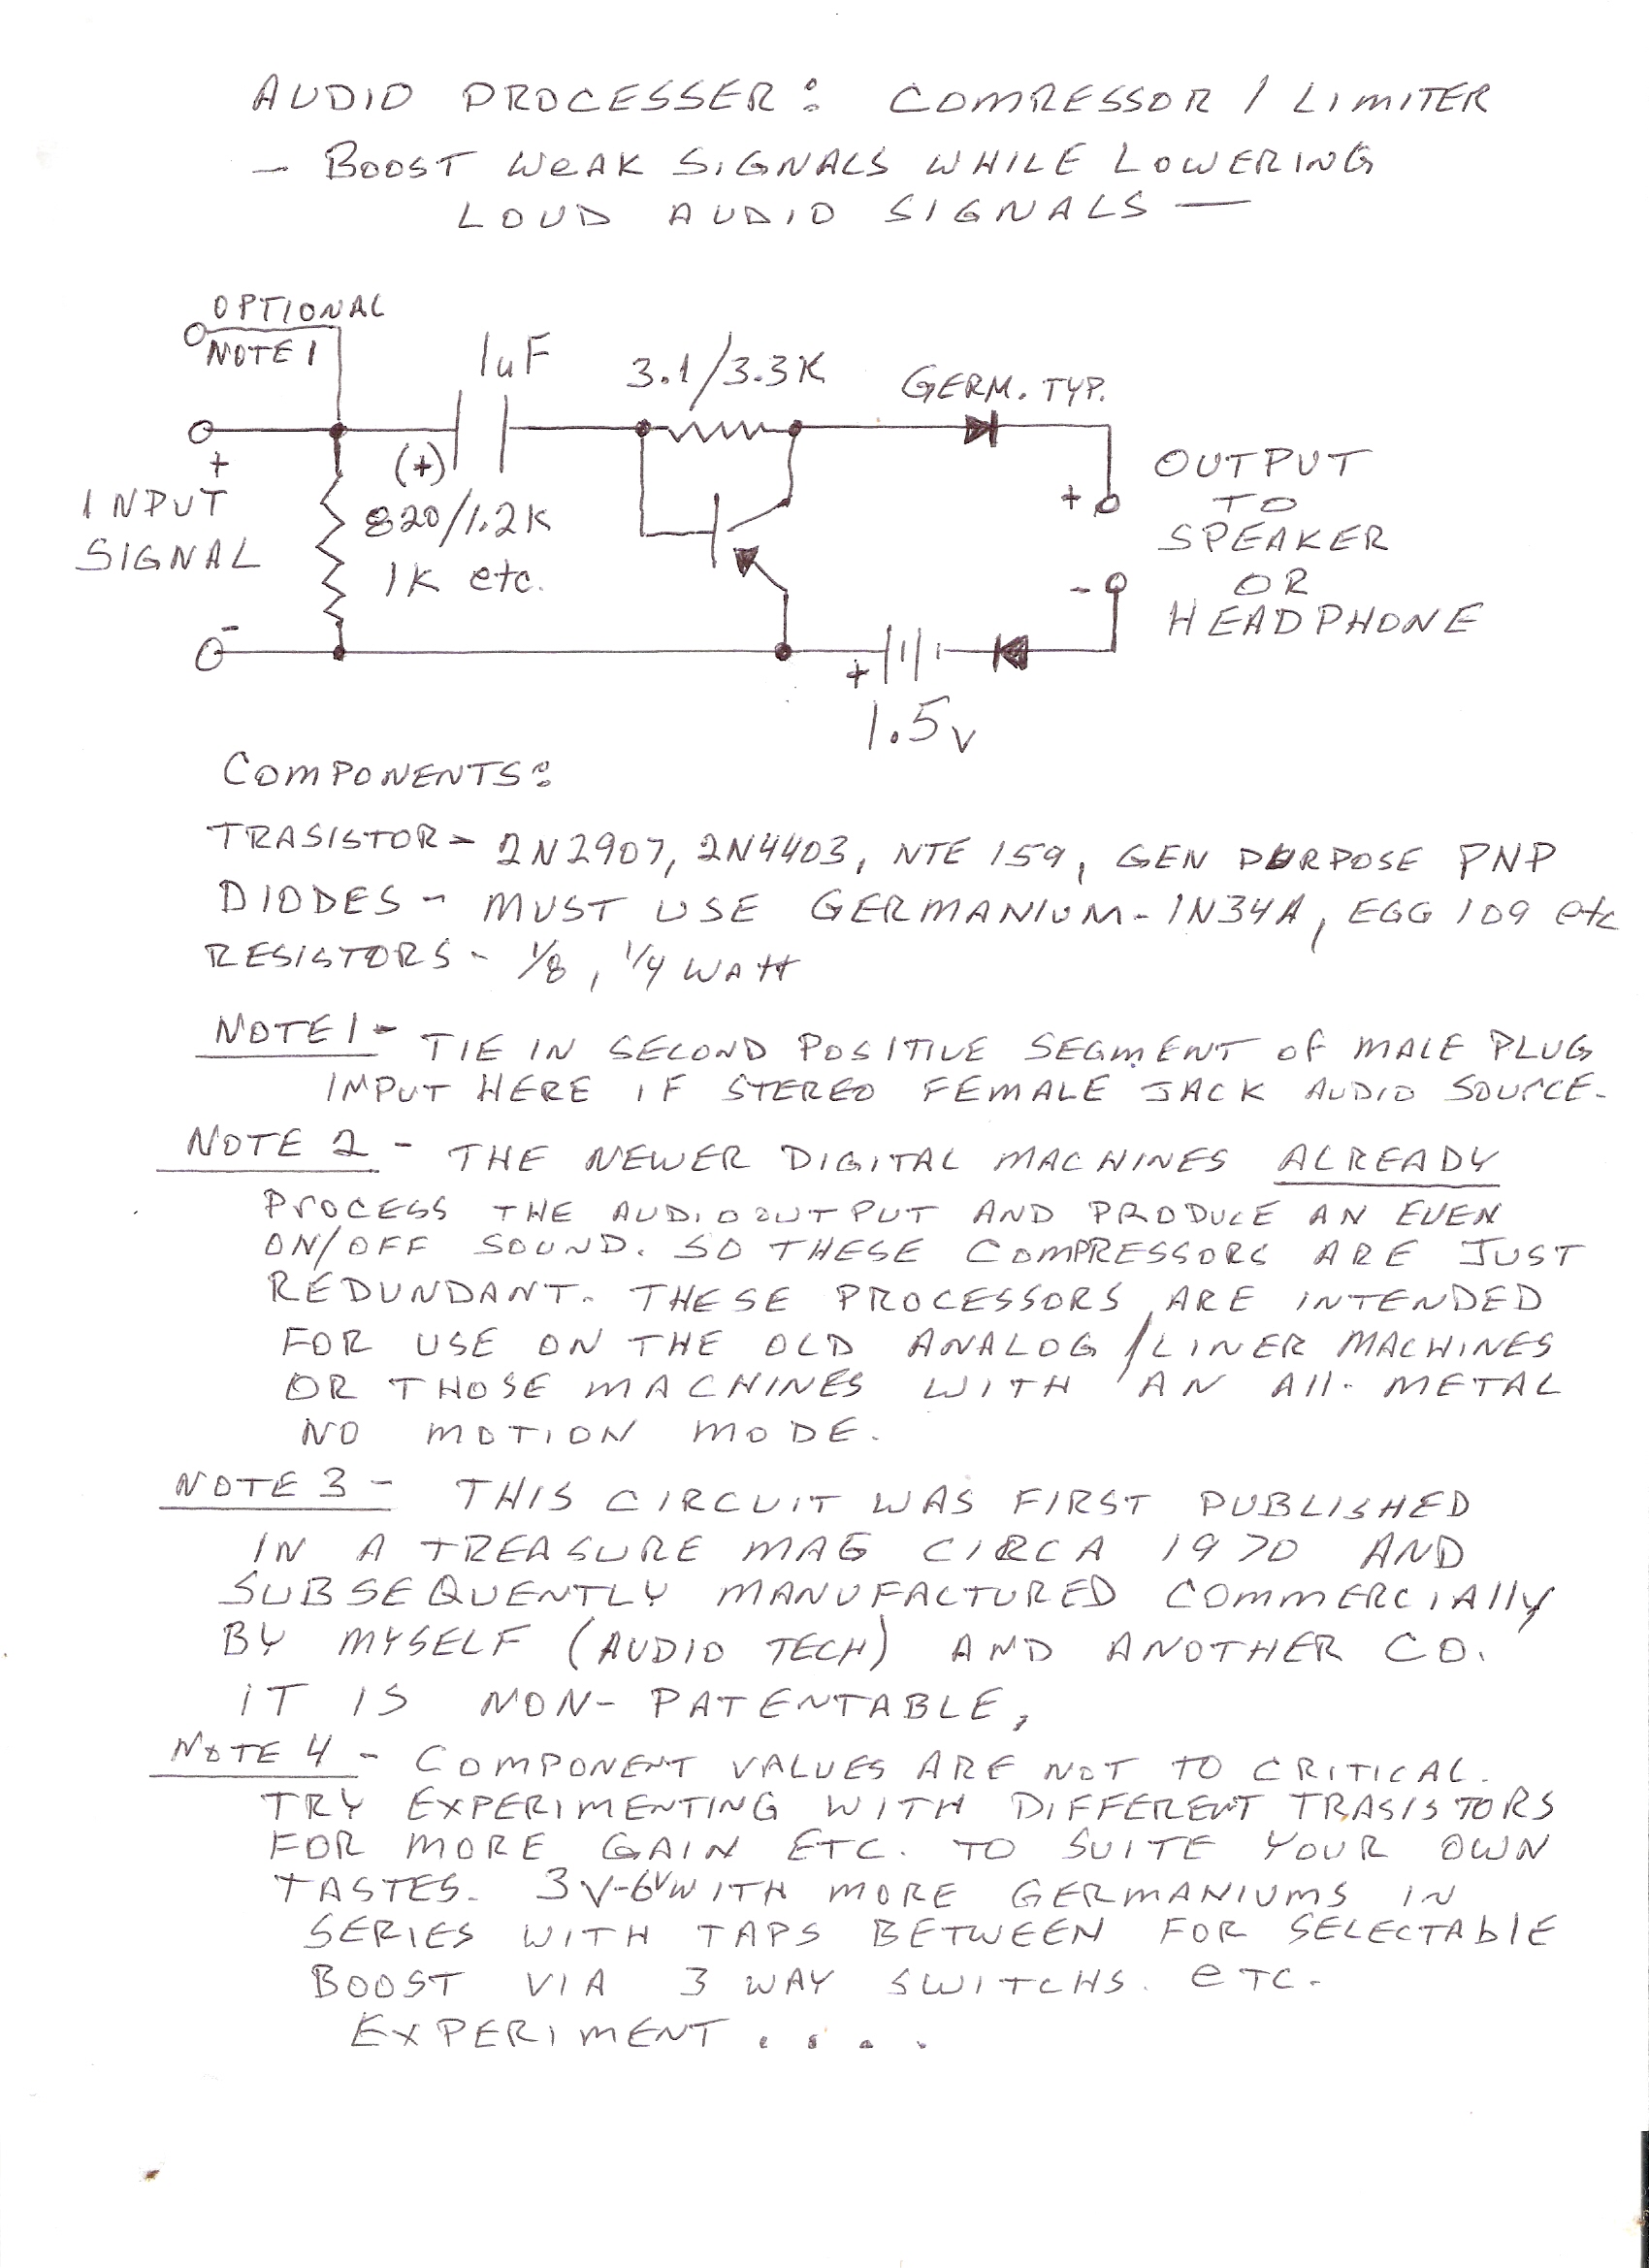 AUDIO PROCESSER: COMRESSOR / LIMITER
— BOOST WEAK SIGNALS WHILE LOWERING
LOUD AUDIO SIGNALS —
OPTIONAL
NOTE 1
1uF
3.1/3.3K
GERM. TYP.
+
(+)
INPUT
SIGNAL
820/1.2K
1K etc.
OUTPUT
+ TO
SPEAKER
- OR
HEADPHONE
-
+
1.5v
COMPONENTS:
TRASISTOR- 2N2907, 2N4403, NTE 159, GEN PURPOSE PNP
DIODES - MUST USE GERMANIUM - 1N34A, EGG 109 etc
RESISTORS - 1/8, 1/4 WATT
NOTE 1 - TIE IN SECOND POSITIVE SEGMENT OF MALE PLUG
INPUT HERE IF STEREO FEMALE JACK AUDIO SOURCE.
NOTE 2 - THE NEWER DIGITAL MACHINES ALREADY
PROCESS THE AUDIO OUTPUT AND PRODUCE AN EVEN
ON/OFF SOUND. SO THESE COMPRESSORS ARE JUST
REDUNDANT. THESE PROCESSORS ARE INTENDED
FOR USE ON THE OLD ANALOG/LINER MACHINES
OR THOSE MACHINES WITH AN All-METAL
NO MOTION MODE.
NOTE 3 - THIS CIRCUIT WAS FIRST PUBLISHED
IN A TREASURE MAG CIRCA 1970 AND
SUBSEQUENTLY MANUFACTURED COMMERCIAlly
BY MYSELF (AUDIO TECH) AND ANOTHER CO.
IT IS NON-PATENTABLE,
NOTE 4 - COMPONENT VALUES ARE NOT TO CRITICAL.
TRY EXPERIMENTING WITH DIFFERENT TRASISTORS
FOR MORE GAIN ETC. TO SUITE YOUR OWN
TASTES. 3V-6V WITH MORE GERMANIUMS IN
SERIES WITH TAPS BETWEEN FOR SELECTABLE
BOOST VIA 3 WAY SWITCHS. ETC.
EXPERIMENT . . . .